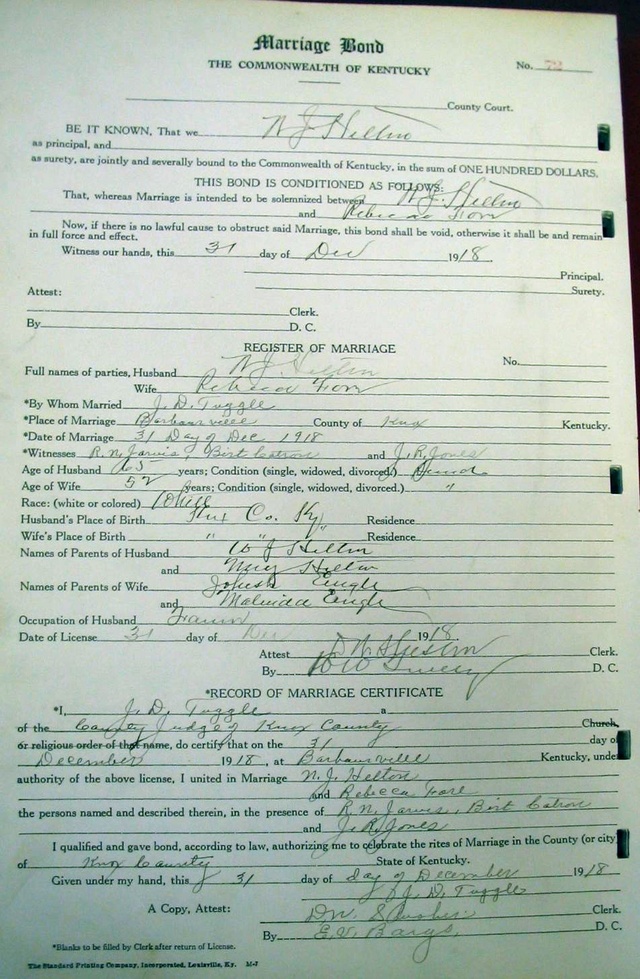 Marriage Bond
THE COMMONWEALTH OF KENTUCKY
No. 72
County Court.
BE IT KNOWN, That we
as principal, and
as surety, are jointly and severally bound to the Commonwealth of Kentucky, in the sum of ONE HUNDRED DOLLARS.
THIS BOND IS CONDITIONED AS FOLLOWS:
That, whereas Marriage is intended to be solemnized between
and Rebecca
Now, if there is no lawful cause to obstruct said Marriage, this bond shall be void, otherwise it shall be and remain
in full force and effect.
Witness our hands, this 31 day of Dec 1918.
Principal.
Attest: Surety.
Clerk.
By D. C.
REGISTER OF MARRIAGE
No.
Full names of parties, Husband
Wife Rebecca
*By Whom Married J. D. Tuggle
*Place of Marriage Barbourville County of Knox Kentucky.
*Date of Marriage 31 Day of Dec. 1918
*Witnesses R. N. Jarvis, Bert Catron and J. R. Jones
Age of Husband years; Condition (single, widowed, divorced.)
Age of Wife 52 years; Condition (single, widowed, divorced.) "
Race: (white or colored) White
Husband's Place of Birth Co. Ky Residence
Wife's Place of Birth " " " Residence
Names of Parents of Husband
and
Names of Parents of Wife
and Malinda
Occupation of Husband
Date of License 31 day of Dec 1918.
Attest Clerk.
By D. C.
*RECORD OF MARRIAGE CERTIFICATE
*I, J. D. Tuggle a
of the County Judge of Knox County Church,
or religious order of that name, do certify that on the 31 day of
December 1918, at Barbourville Kentucky, under
authority of the above license, I united in Marriage N. J. Helton
and Rebecca Fore
the persons named and described therein, in the presence of R. N. Jarvis, Bert Catron
and J. R. Jones
I qualified and gave bond, according to law, authorizing me to celebrate the rites of Marriage in the County (or city)
of Knox County State of Kentucky.
Given under my hand, this 31 day of day of December 1918
J. D. Tuggle
A Copy, Attest: Clerk.
By D. C.
*Blanks to be filled by Clerk after return of License.
The Standard Printing Company, Incorporated, Louisville, Ky. M-J